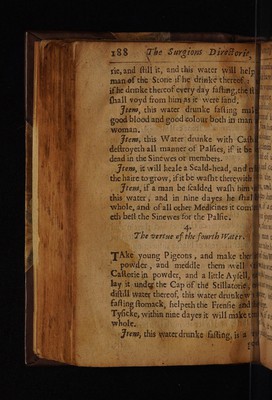 188 The Surgions Directorie,
rie, and still it, and this water will help
man of the Stone if he drinke thereof:
if he drinke thereof every day fasting, the
shall voyd from him as it were sand,
Item, this water drunke fasting
good blood and good colour both in man
woman.
Item, this Water drunke with
destroyeth all manner of Palsies, if it be
dead in the Sinewes or members.
Item, it will heale a Scald-head, and
the haire to grow, if it be washt therewith
Item, if a man be scalded wash him
this water; and in nine dayes he shal
whole, and of all other Medicines it
eth best the Sinewes for the Palsie.
4.
The vertue of the fourth Water.
TAke young Pigeons, and make them
powder, and meddle them well
Castorie in powder, and a little Aysell,
lay it under the Cap of the Stillatorie,
distill water thereof, this water drunke
fasting stomack, helpeth the Frensie and
Tysicke, within nine dayes it will make
whole.
Item, this water drunke fasting, is a